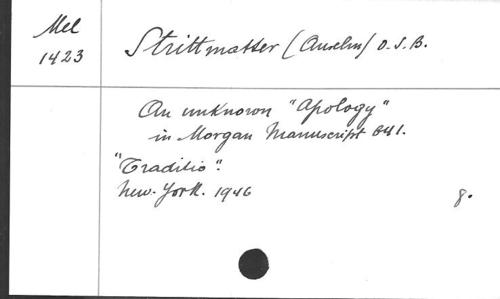 Mel
1423
Strittmatter (Anselm) O.S.B.
An unknown "Apology"
in Morgan Manuscript 641.
"Traditio".
New-York. 1946
8.